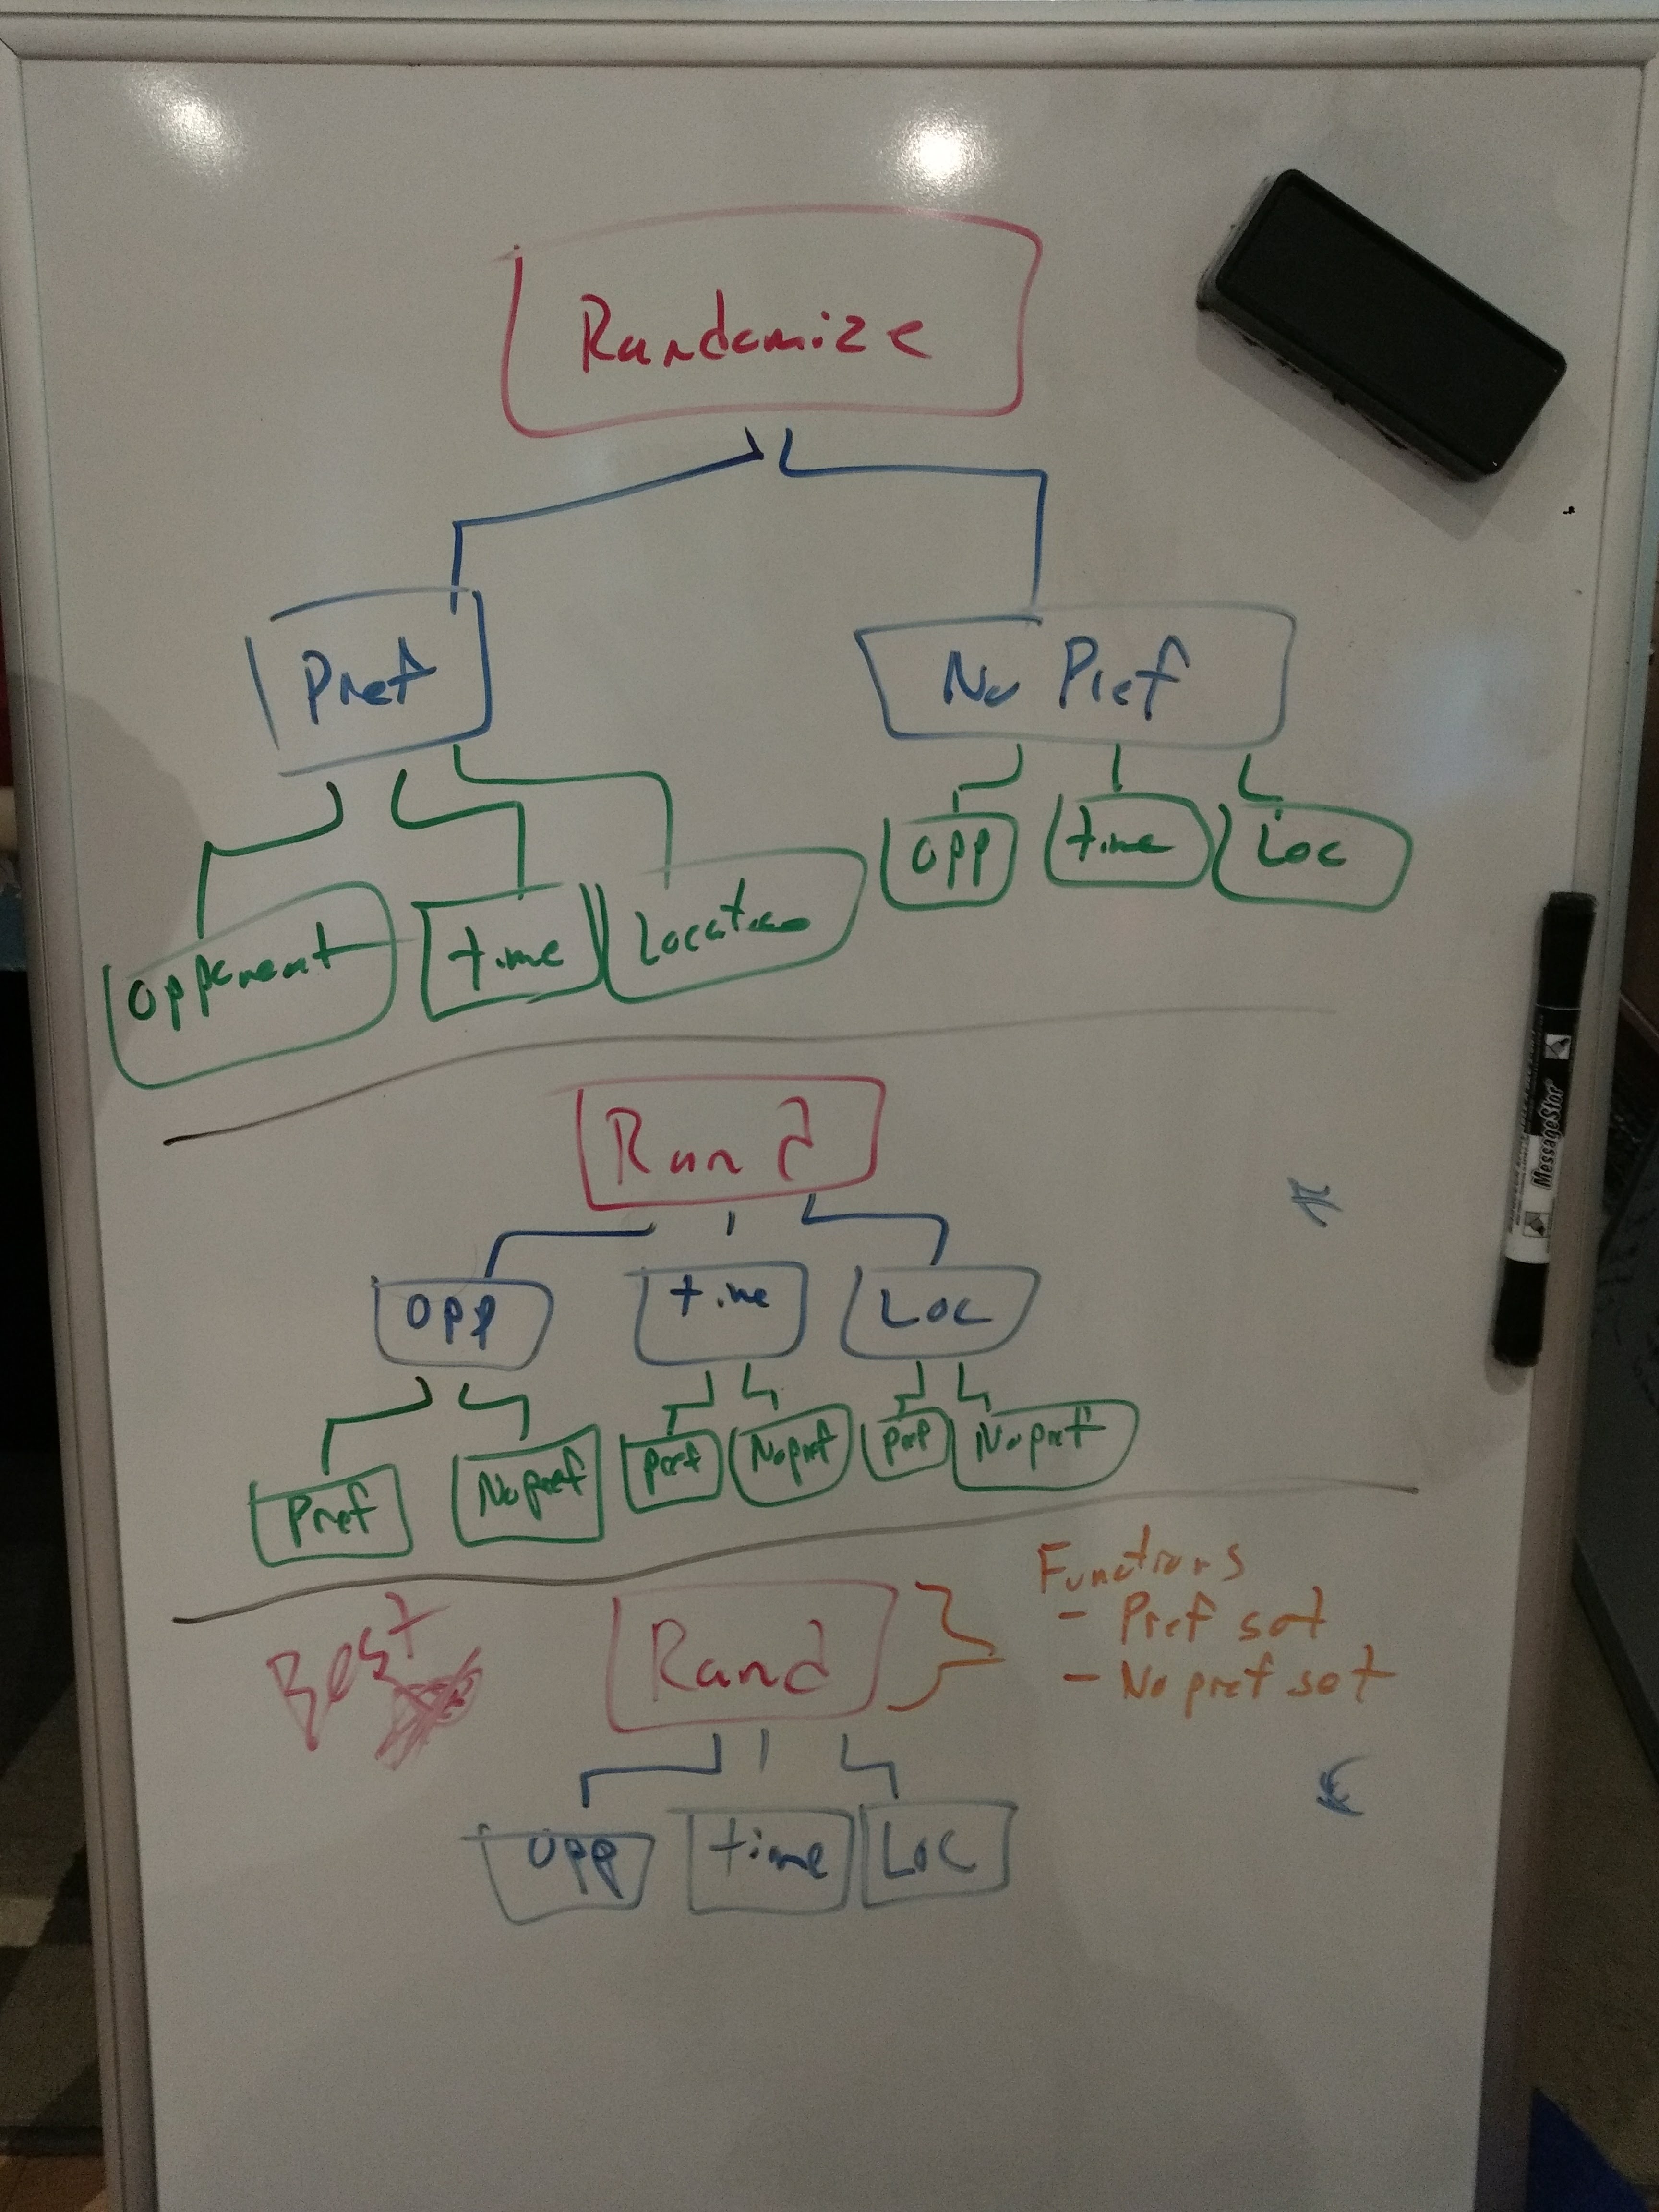 Randomize
Pref
No Pref
Opponent
time
Location
Opp
time
Loc
Rand
Opp
time
Loc
Pref
No pref
Pref
No pref
Pref
No pref
Best
Rand
Functions
- Pref set
- No pref set
Opp
time
Loc
MessageStor